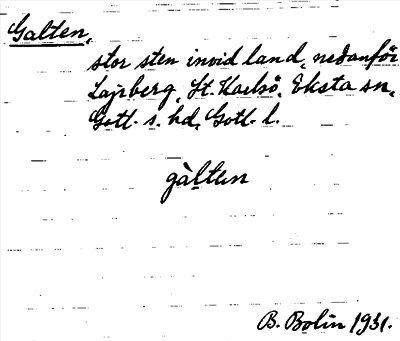 Galten,
stor sten invid land, nedanför
Lajrberg, St. Karlsö, Eksta sn,
Gotl. s. hd, Gotl. l.
gàltɩn
B. Bolin 1931.